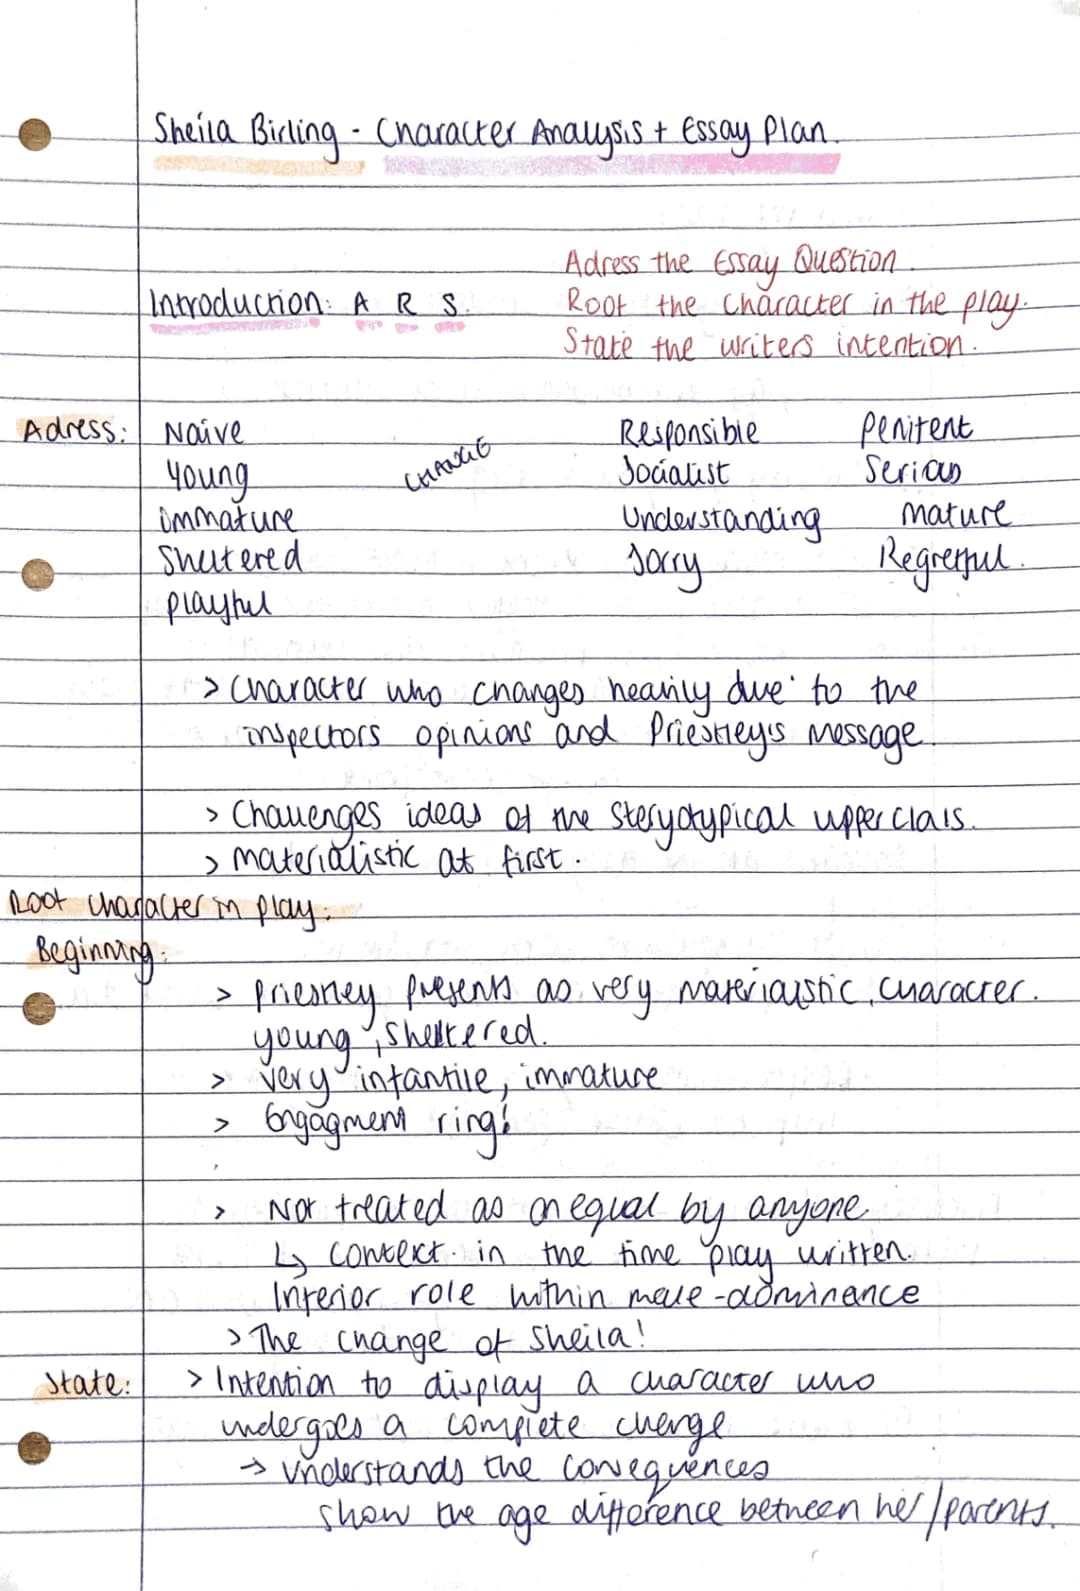 Sheila Birling - Character Analysis + Essay Plan.
Adress the Essay Question.
Introduction: A R S.
Root the character in the play.
State the writers intention.
Adress: Naive Responsible Penitent
Young CHANGE Socialist Serious
immature Understanding Mature
Sheltered Sorry Regretful.
playful
> Character who changes heavily due to the
inspectors opinions and Priestley's message.
> Challenges ideas of the Steryotypical upper class.
> Materialistic at first.
Root character in play:
Beginning:
> Priestley presents as very materialistic character.
young, sheltered.
> Very infantile, immature
> Engagment ring!
> Not treated as an equal by anyone.
↳ context in the time play written.
Inferior role within male-dominance
> The change of Sheila!
State: > Intention to display a character who
undergoes a complete change
→ Understands the consequences
show the age difference between her/parents.